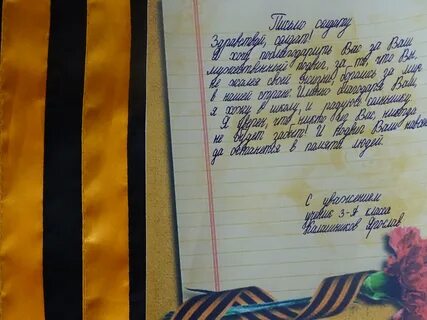 Письмо солдату
Здравствуй, солдат!
Я хочу поблагодарить Вас за Ваш
мужественный подвиг, за то, что Вы,
не жалея своей жизни, боролись за мир
в нашей стране. Именно благодаря Вам,
я хожу в школу, и радуюсь солнышку.
Я уверен, что никто из Вас, никогда
не будет забыт! И подвиг Ваш навсег
да останется в памяти людей.
С уважением
ученик 3-А класса
Калашников Ярослав